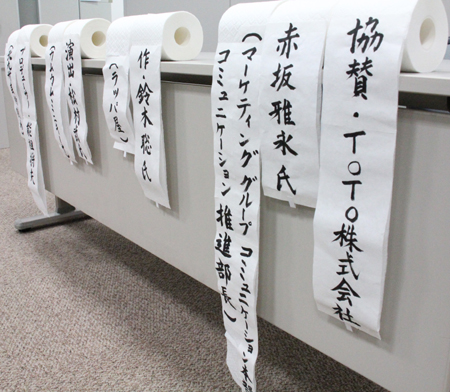 協賛・TOTO株式会社
赤坂雅永氏
(マーケティンググループ コミュニケーション本部
コミュニケーション推進部長)
作・鈴木聡氏
(ラッパ屋)
演出・松村
プロデューサー